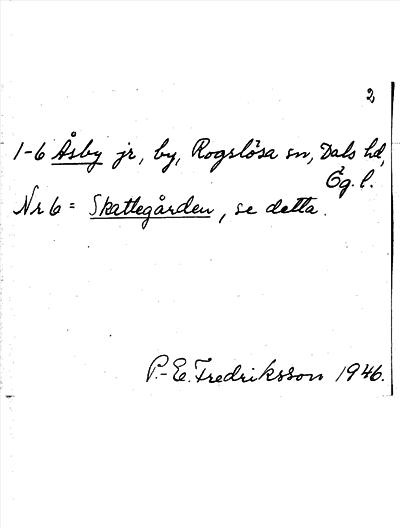 2
1-6 Åsby jr, by, Rogslösa sn, Dals hd,
Ög. l.
Nr 6 = Skattegården, se detta.
P.-E. Fredriksson 1946.